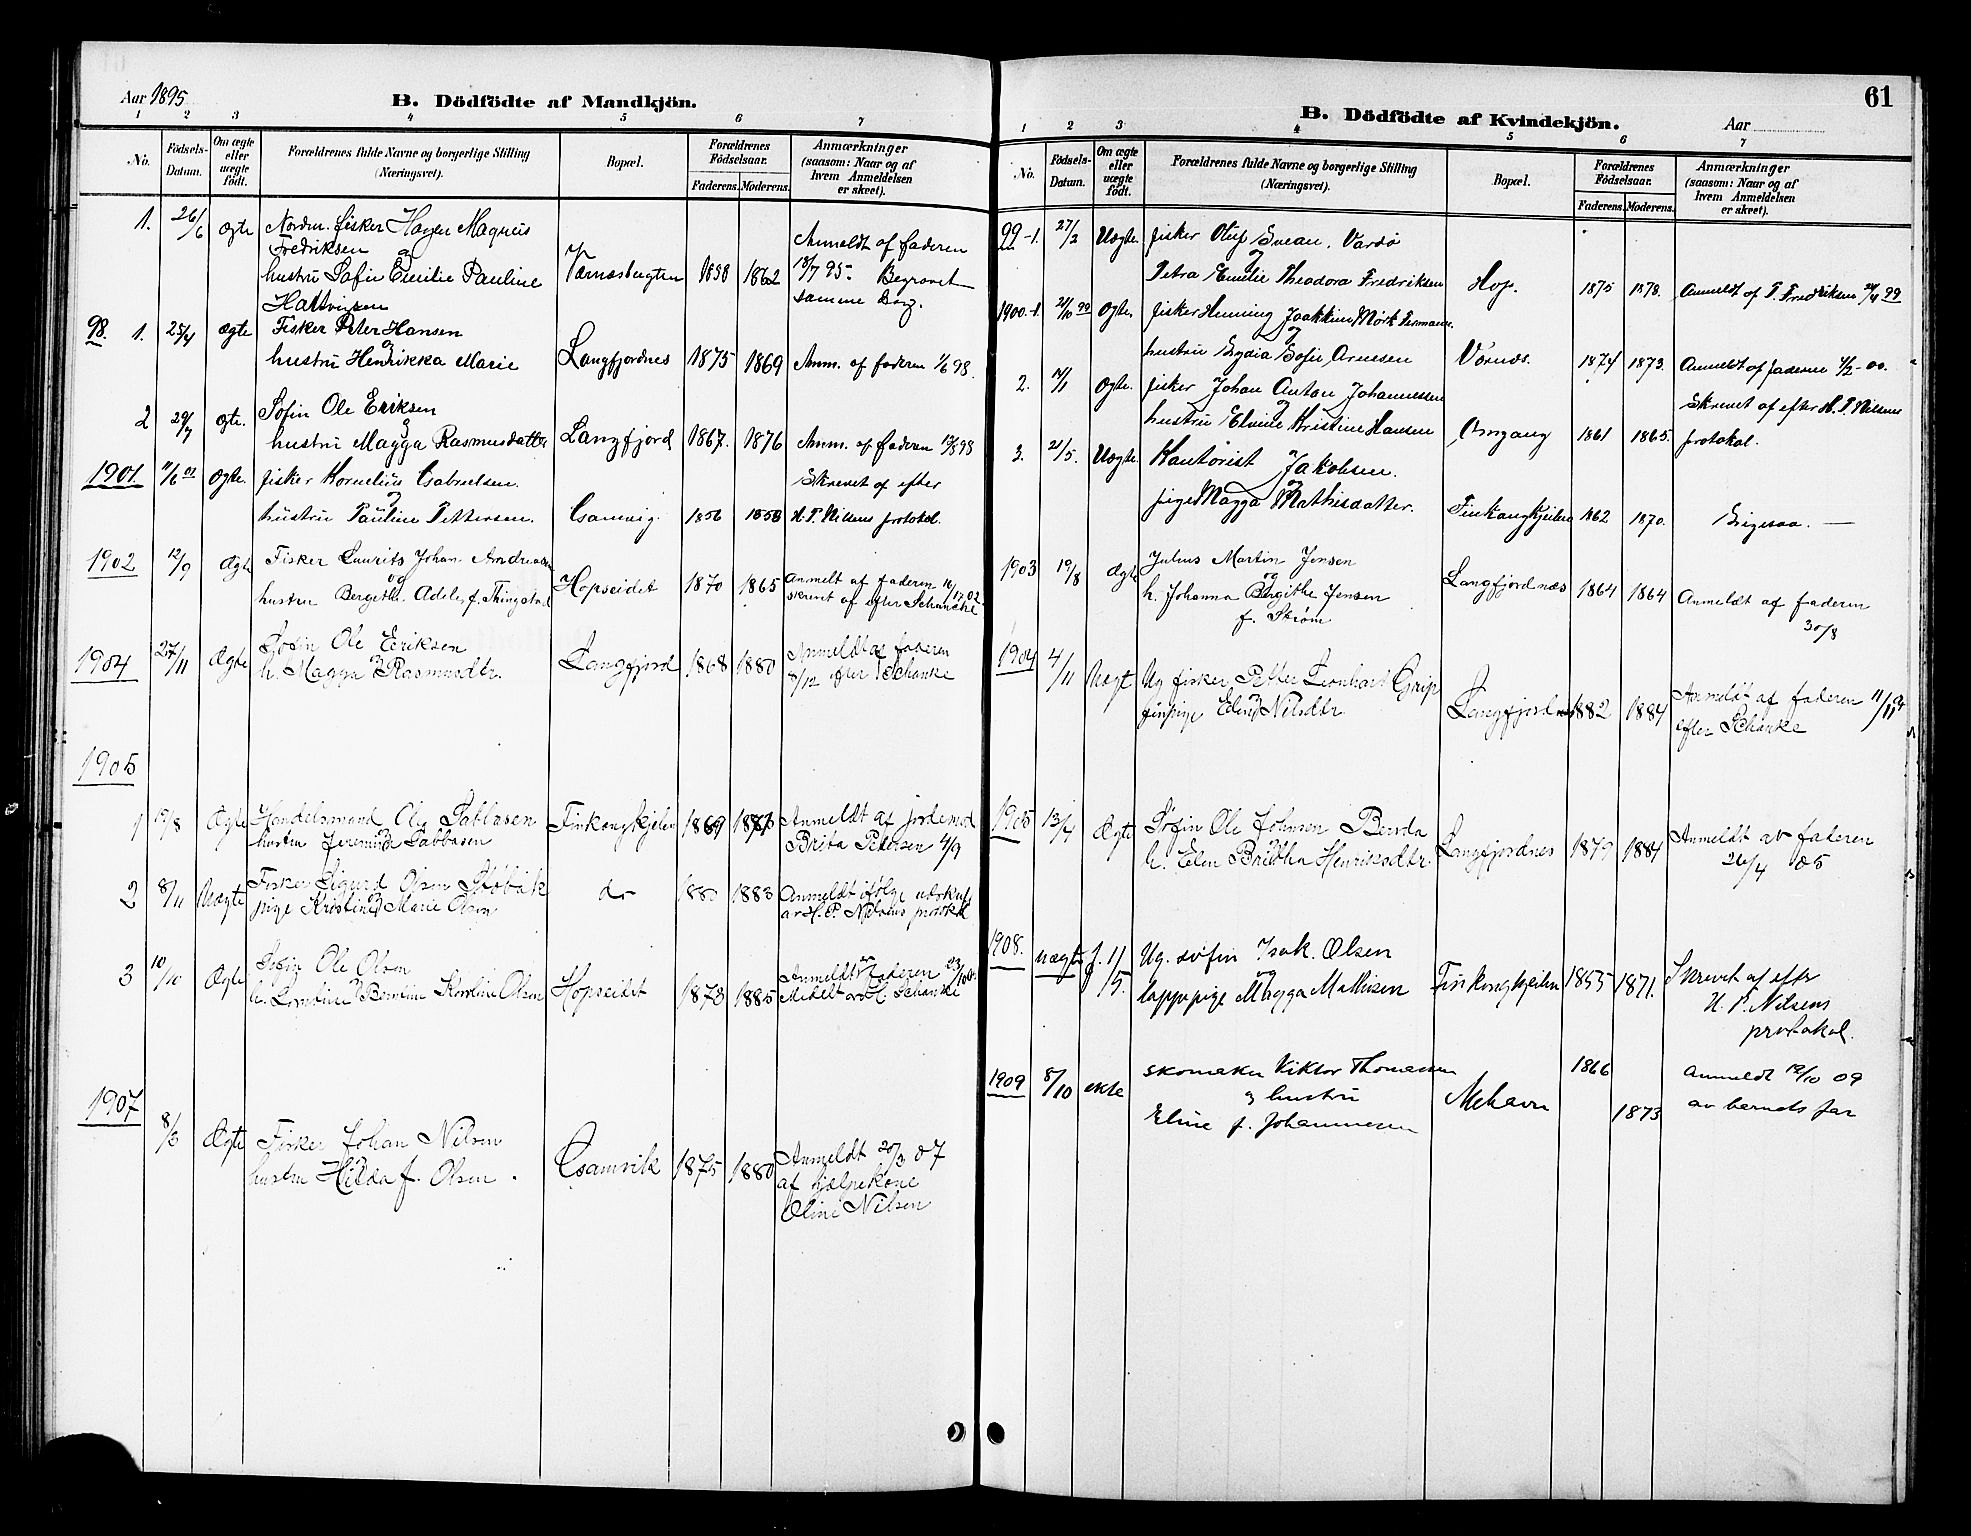 Aar 1895
B. Dödfödte af Mandkjön.
1 2 3 4 5 6 7
No.
Födsels-Datum.
Om ægte eller uægte födt.
Forældrenes fulde Navne og borgerlige Stilling (Næringsvei).
Bopæl.
Forældrenes Födselsaar.
Faderens. Moderens.
Anmærkninger (saasom: Naar og af hvem Anmeldelsen er skeet).
1. 26/6 ægte Nordm. fisker Hagen Magnus
Fredriksen
og
hustru Sofie Cecilie Pauline
Hattvigsen
Værnæsbugten 1858 1862
Anmeldt af faderen
18/7 95. Begravet
samme Dag.
98. 1. 25/4 ægte Fisker Peter Hansen
og
hustru Henrikka Marie
Langfjordnes 1875 1869 Anm. af faderen 1/6 98.
2 29/7 ægte. Søfin Ole Eriksen
og
hustru Magga Rasmusdatter
Langfjord 1867. 1876 Anm. af faderen
1901. 11/6 01 ægte. fisker Kornelius Gabrielsen
og
hustru Pauline Pettersen.
Gamvig. 1856 1858
Skrevet af efter
H. P. Nilsens protokol.
1902 12/9 Ægte Fisker Laurits Johan Andreassen
og
hustru Bergithe Adele f. Thingstad
Hopseidet 1870 1865
anmelt af faderen
skrevet af efter Schanche
1904 27/11 Ægte Søfin Ole Eriksen
h. Magga Rasmusdtr.
Langfjord 1868 1880
Anmeldt af faderen
8/12 efter Schanke
1905
1 19/8 Ægte Handelsmand Ole Sabbasen
hustru Jeremine Sabbasen
Finkongkjelen 1869
Anmeldt af jordemod
Brita Petersen 4/9
2 8/11 Uægte Fisker Sigurd Olsen Støbak
pige Kristine Marie Olsen
do 1883
Anmeldt ifølge udskrift
av H. P. Nilsens protokol
3 10/10 Ægte Søfin Ole Olsen
Hopseidet 1873 1885
Anmeldt av faderen
1907
8/3 Ægte Fisker Johan Nilsen
hustru Hilda f. Olsen.
Gamvik 1875 1880
Anmeldt 20/3 07
af hjælpekone
Oline Nilsen
61
B. Dödfödte af Kvindekjön.
Aar
1 2 3 4 5 6 7
No.
Födsels-Datum.
Om ægte eller uægte födt.
Forældrenes fulde Navne og borgerlige Stilling (Næringsvei).
Bopæl.
Forældrenes Födselsaar.
Faderens. Moderens.
Anmærkninger (saasom: Naar og af hvem Anmeldelsen er skeet).
99-1. 27/2 Uægte fisker Oluf Svean, Vardø
og
Petra Emilie Theodora Fredriksen
Hop. 1875 1878. Anmeldt af P. Fredriksen 24/4 99
1900.-1. 21/10 99 ægte. fisker Henning Joakkim Mørk
og
hustru Lydia Sofie Arnesen
Vørnæs. 1874 1873. Anmeldt af faderen 4/2-00.
2. ægte. fisker Johan Anton Johannessen
og
hustru Elvine Kristine Hansen
Omgang 1861 1865.
Skrevet af efter H. P. Nilsens
protokol.
3. 21/5. Uægte. Kantorist Jakobsen.
og
pige Magga Mathisdatter.
Finkongkjeilen 1862 1870. Ligesaa. —
1903 19/8 Ægte Julius Martin Jensen
og
h. Johanna Bergithe Jensen
f. Strøm
Langfjordnæs 1864 1864 Anmeldt af faderen
30/8
1904 4/11 Uægt Ug fisker Petter Leonhart Grip
finpige Elen Nilsdtr.
Langfjordnes 1882 1884
Anmeldt af faderen 11/11 04
efter Schanke
1905 13/4 Ægte Søfin Ole Johnsen Benda
h. Elen Britha Henriksdtr.
Langfjordnes 1879 1884
Anmeldt av faderen
26/4 05
1908. uægte f. 11/5. Ug. søfin Isak Olsen
og
lappepige Magga Mathisen
Finkongkjeilen 1855 1871.
Skrevet af efter
H. P. Nilsens
protokol.
1909 8/10 ekte skomaker Viktor Thomassen
og hustru
Eline f. Johannesen
Mehavn 1866 1873
anmeldt 12/10 09
av barnets far